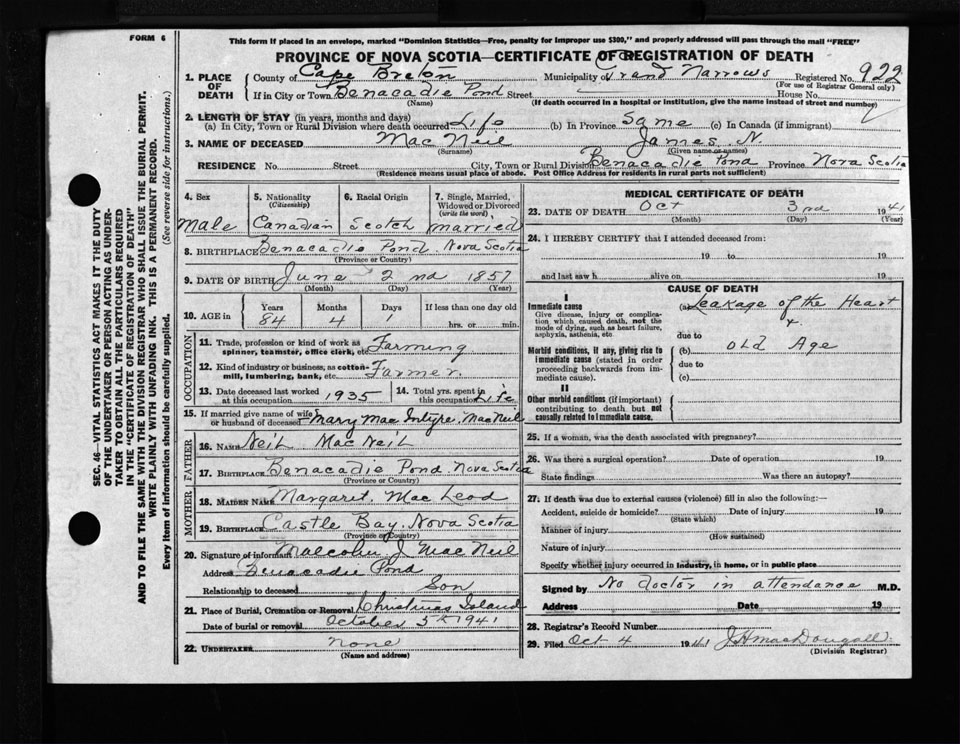 FORM 6
This form if placed in an envelope, marked "Dominion Statistics—Free, penalty for improper use $300," and properly addressed will pass through the mail "FREE"
PROVINCE OF NOVA SCOTIA—CERTIFICATE OF REGISTRATION OF DEATH
1. PLACE OF DEATH
County of Cape Breton Municipality of Grand Narrows Registered No. 922
(For use of Registrar General only)
If in City or Town Benacadie Pond Street House No.
(Name) (If death occurred in a hospital or institution, give the name instead of street and number)
2. LENGTH OF STAY (in years, months and days)
(a) In City, Town or Rural Division where death occurred Life (b) In Province Same (c) In Canada (if immigrant)
3. NAME OF DECEASED Mac Neil James N.
(Surname) (Given name or names)
RESIDENCE No. Street City, Town or Rural Division Benacadie Pond Province Nova Scotia
(Residence means usual place of abode. Post Office Address for residents in rural parts not sufficient)
4. Sex
Male
5. Nationality
(Citizenship)
Canadian
6. Racial Origin
Scotch
7. Single, Married, Widowed or Divorced
(write the word)
married
8. BIRTHPLACE Benacadie Pond, Nova Scotia
(Province or Country)
9. DATE OF BIRTH June 2nd 1857
(Month) (Day) (Year)
10. AGE in
Years Months Days If less than one day old
84 4 1 hrs. or min.
OCCUPATION
11. Trade, profession or kind of work as spinner, teamster, office clerk, etc. Farming
12. Kind of industry or business, as cotton-mill, lumbering, bank, etc. Farmer
13. Date deceased last worked at this occupation 1935
14. Total yrs. spent in this occupation Life
15. If married give name of wife or husband of deceased Mary Mac Intyre Mac Neil
FATHER
16. NAME Neil Mac Neil
17. BIRTHPLACE Benacadie Pond, Nova Scotia
(Province or Country)
MOTHER
18. MAIDEN NAME Margaret Mac Leod
19. BIRTHPLACE Castle Bay, Nova Scotia
(Province or Country)
20. Signature of informant Malcolm J. Mac Neil
Address Benacadie Pond
Relationship to deceased Son
21. Place of Burial, Cremation or Removal Christmas Island
Date of burial or removal October 5th 1941
22. UNDERTAKER None
(Name and address)
MEDICAL CERTIFICATE OF DEATH
23. DATE OF DEATH Oct 3rd 1941
(Month) (Day) (Year)
24. I HEREBY CERTIFY that I attended deceased from:
19 to 19
and last saw h alive on 19
CAUSE OF DEATH
I
Immediate cause
Give disease, injury or complication which caused death, not the mode of dying, such as heart failure, asphyxia, asthenia, etc
(a) Leakage of the Heart
+
due to
Morbid conditions, if any, giving rise to immediate cause (stated in order proceeding backwards from immediate cause).
(b) Old Age
due to
(c)
II
Other morbid conditions (if important) contributing to death but not causally related to immediate cause.
25. If a woman, was the death associated with pregnancy?
26. Was there a surgical operation? Date of operation 19
State findings Was there an autopsy?
27. If death was due to external causes (violence) fill in also the following:—
Accident, suicide or homicide? Date of injury 19
(State which)
Manner of injury
(How sustained)
Nature of injury
Specify whether injury occurred in industry, in home, or in public place
Signed by No doctor in attendance M.D.
Address Date 19
28. Registrar's Record Number
29. Filed Oct 4 1941 J H MacDougall
(Division Registrar)
SEC. 46—VITAL STATISTICS ACT MAKES IT THE DUTY
OF THE UNDERTAKER OR PERSON ACTING AS UNDERTAKER TO OBTAIN ALL THE PARTICULARS REQUIRED
IN THE "CERTIFICATE OF REGISTRATION OF DEATH"
AND TO FILE THE SAME WITH THE DIVISION REGISTRAR WHO SHALL ISSUE THE BURIAL PERMIT.
WRITE PLAINLY WITH UNFADING INK. THIS IS A PERMANENT RECORD.
Every item of information should be carefully supplied. (See reverse side for instructions.)